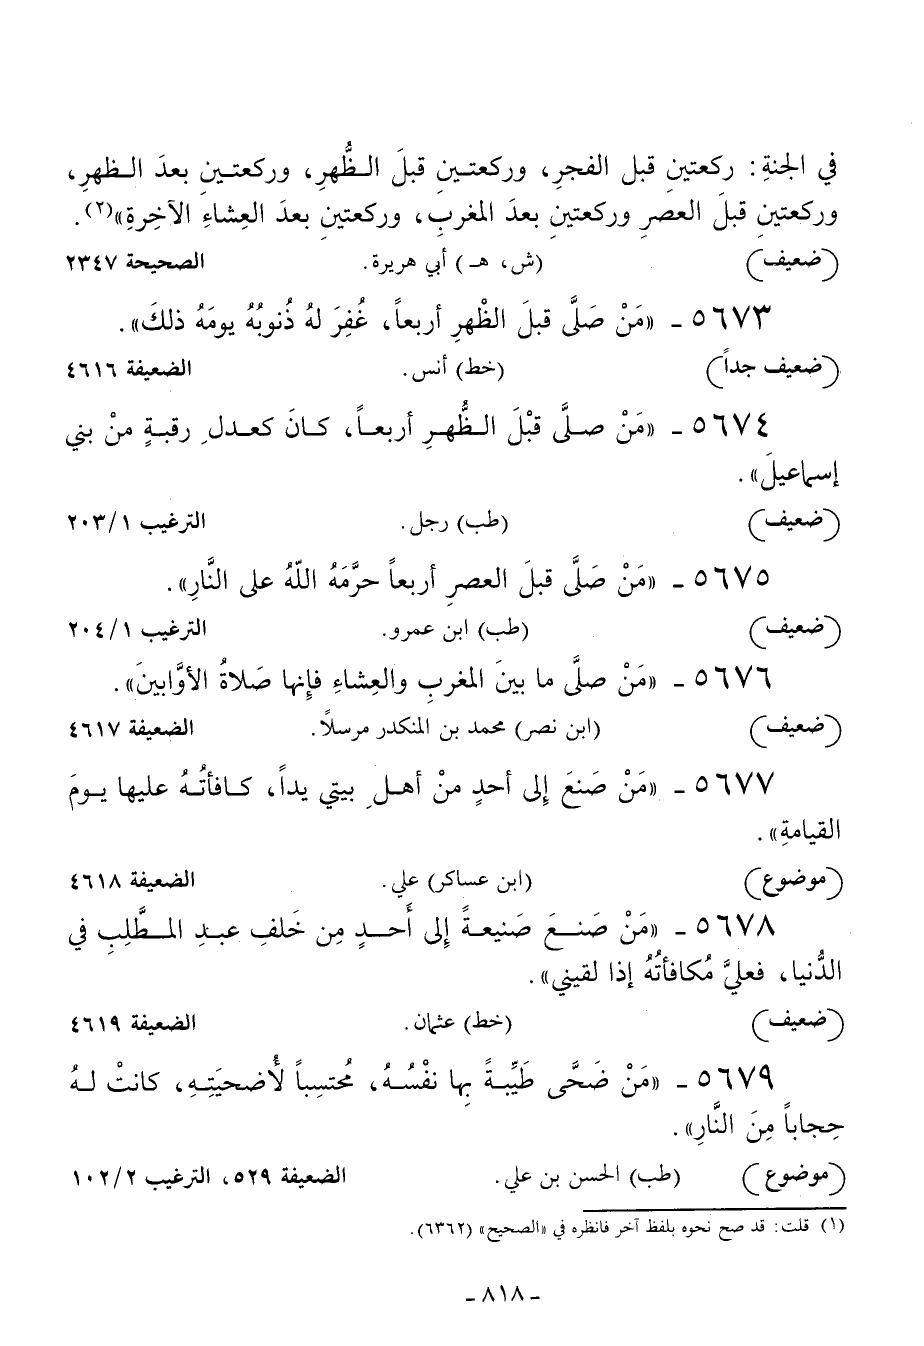 في الجنةِ: ركعتينِ قبل الفجرِ، وركعتـينِ قبلَ الـظُّهرِ، وركعتـينِ بعدَ الـظهرِ،
وركعتينِ قبلَ العصرِ وركعتينِ بعدَ المغربِ، وركعتينِ بعدَ العِشاءِ الآخِرةِ»(٢).
(ضعيف) (ش، هـ) أبي هريرة. الصحيحة ٢٣٤٧
٥٦٧٣ ـ «مَنْ صَلَّى قبلَ الظْهرِ أربعاً، غُفِرَ لهُ ذُنوبُهُ يومَهُ ذلكَ».
(ضعيف جداً) (خط) أنس. الضعيفة ٤٦١٦
٥٦٧٤ ـ «مَنْ صـلَّى قبْلَ الـظُّهـرِ أربعـاً، كـانَ كعـدلِ رقبـةٍ منْ بني
إسماعيلَ».
(ضعيف) (طب) رجل. الترغيب ٢٠٣/١
٥٦٧٥ ـ «مَنْ صَلَّى قبلَ العصرِ أربعاً حرَّمَهُ اللّهُ على النَّارِ».
(ضعيف) (طب) ابن عمرو. الترغيب ٢٠٤/١
٥٦٧٦ ـ «مَنْ صلَّى ما بينَ المغربِ والعِشاءِ فإنها صَلاةُ الأوَّابينَ».
(ضعيف) (ابن نصر) محمد بن المنكدر مرسلاً. الضعيفة ٤٦١٧
٥٦٧٧ ـ «مَنْ صَنعَ إلى أحدٍ منْ أهلِ بيتي يداً، كـافأتُـهُ عليها يـومَ
القيامةِ».
(موضوع) (ابن عساكر) علي. الضعيفة ٤٦١٨
٥٦٧٨ ـ «مَنْ صَنـعَ صَنيعـةً إلى أَحـدٍ مِن خَلفِ عبـدِ المـطَّلِبِ في
الدُّنيا، فعليَّ مُكافأتُهُ إذا لقيني».
(ضعيف) (خط) عثمان. الضعيفة ٤٦١٩
٥٦٧٩ ـ «مَنْ ضَحَّى طَيِّبـةً بها نفْسُـهُ، مُحتسِباً لأُضحيَتِـهِ، كانتْ لـهُ
حِجاباً مِنَ النَّارِ».
(موضوع) (طب) الحسن بن علي. الضعيفة ٥٢٩، الترغيب ١٠٢/٢
(١) قلت: قد صح نحوه بلفظ آخر فانظره في «الصحيح» (٦٣٦٢).
ـ ٨١٨ ـ